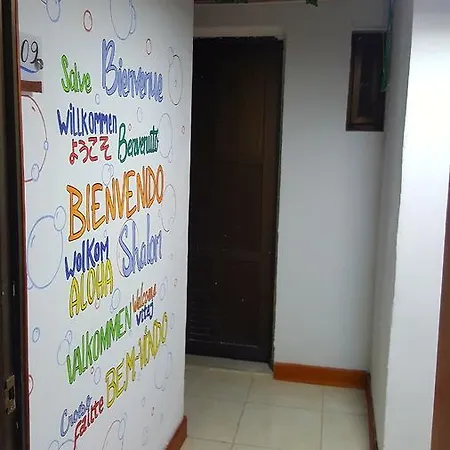 09
Salve
Bienvenue
Willkommen
ようこそ
Benvenuto
BIENVENDO
Wolkom
Shalon
ALOHA
Welcome
Vitej
VALKOMMEN
BEM-VINDO
Failte